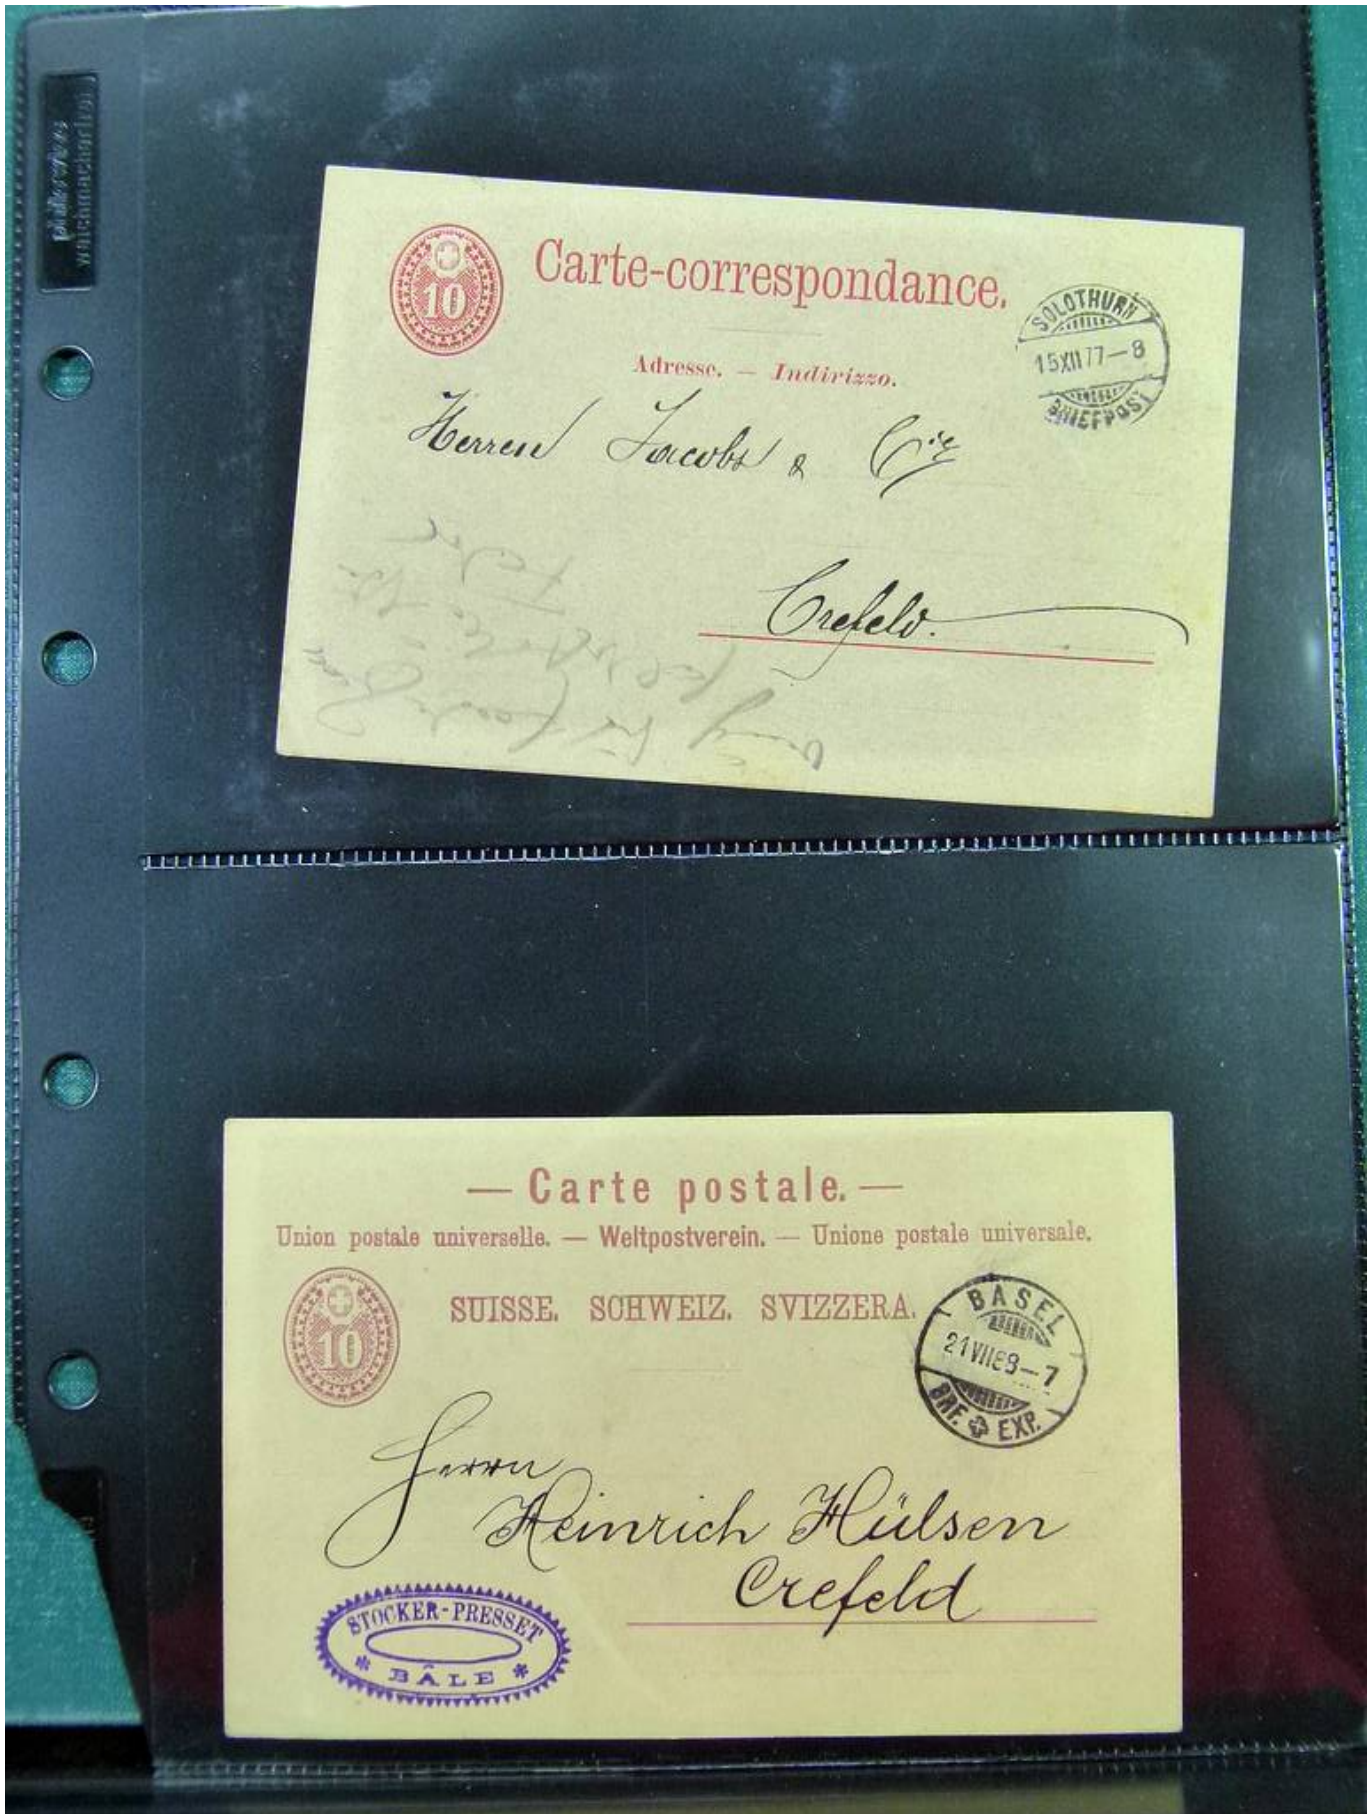 10
Carte-correspondance.
SOLOTHURN
15XII77-8
BRIEFPOST
Adresse. — Indirizzo.
Herren Jacobs & Cie
Crefeld.
— Carte postale. —
Union postale universelle. — Weltpostverein. — Unione postale universale.
10
SUISSE. SCHWEIZ. SVIZZERA.
BASEL
21VII88-7
BRF. EXP.
Herrn
Heinrich Hülsen
Crefeld
STOCKER-PRESSET
* BÂLE *